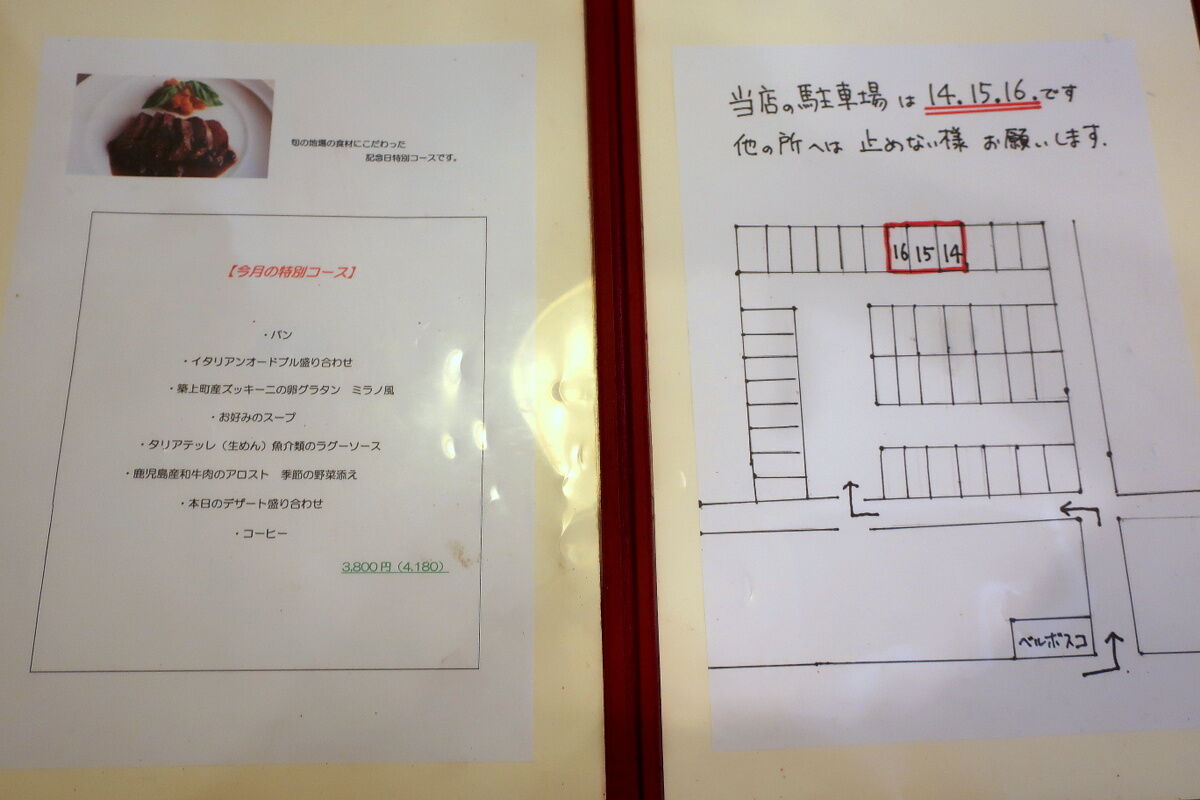 旬の地場の食材にこだわった
記念日特別コースです。
【今月の特別コース】
・パン
・イタリアンオードブル盛り合わせ
・築上町産ズッキーニの卵グラタン　ミラノ風
・お好みのスープ
・タリアテッレ（生めん）魚介類のラグーソース
・鹿児島産和牛肉のアロスト　季節の野菜添え
・本日のデザート盛り合わせ
・コーヒー
3,800円（4,180）
当店の駐車場は 14.15.16.です
他の所へは 止めない様 お願いします.
16 15 14
ベルボスコ